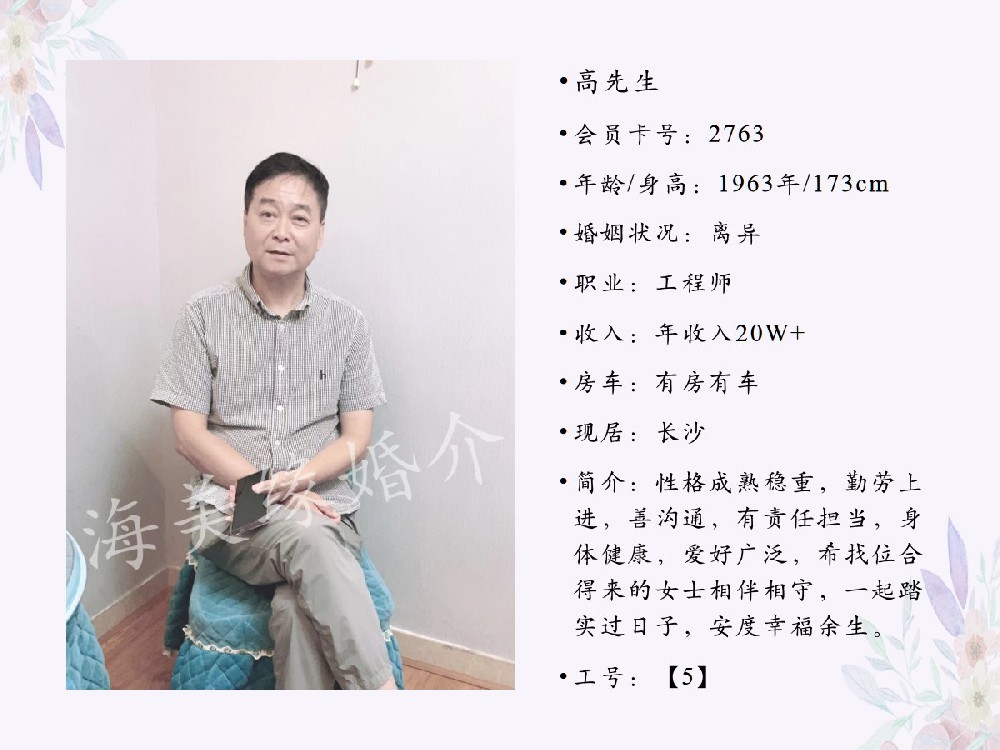 •高先生
•会员卡号：2763
•年龄/身高：1963年/173cm
•婚姻状况：离异
•职业：工程师
•收入：年收入20W+
•房车：有房有车
•现居：长沙
•简介：性格成熟稳重，勤劳上
进，善沟通，有责任担当，身
体健康，爱好广泛，希找位合
得来的女士相伴相守，一起踏
实过日子，安度幸福余生。
•工号：【5】
海美缘婚介